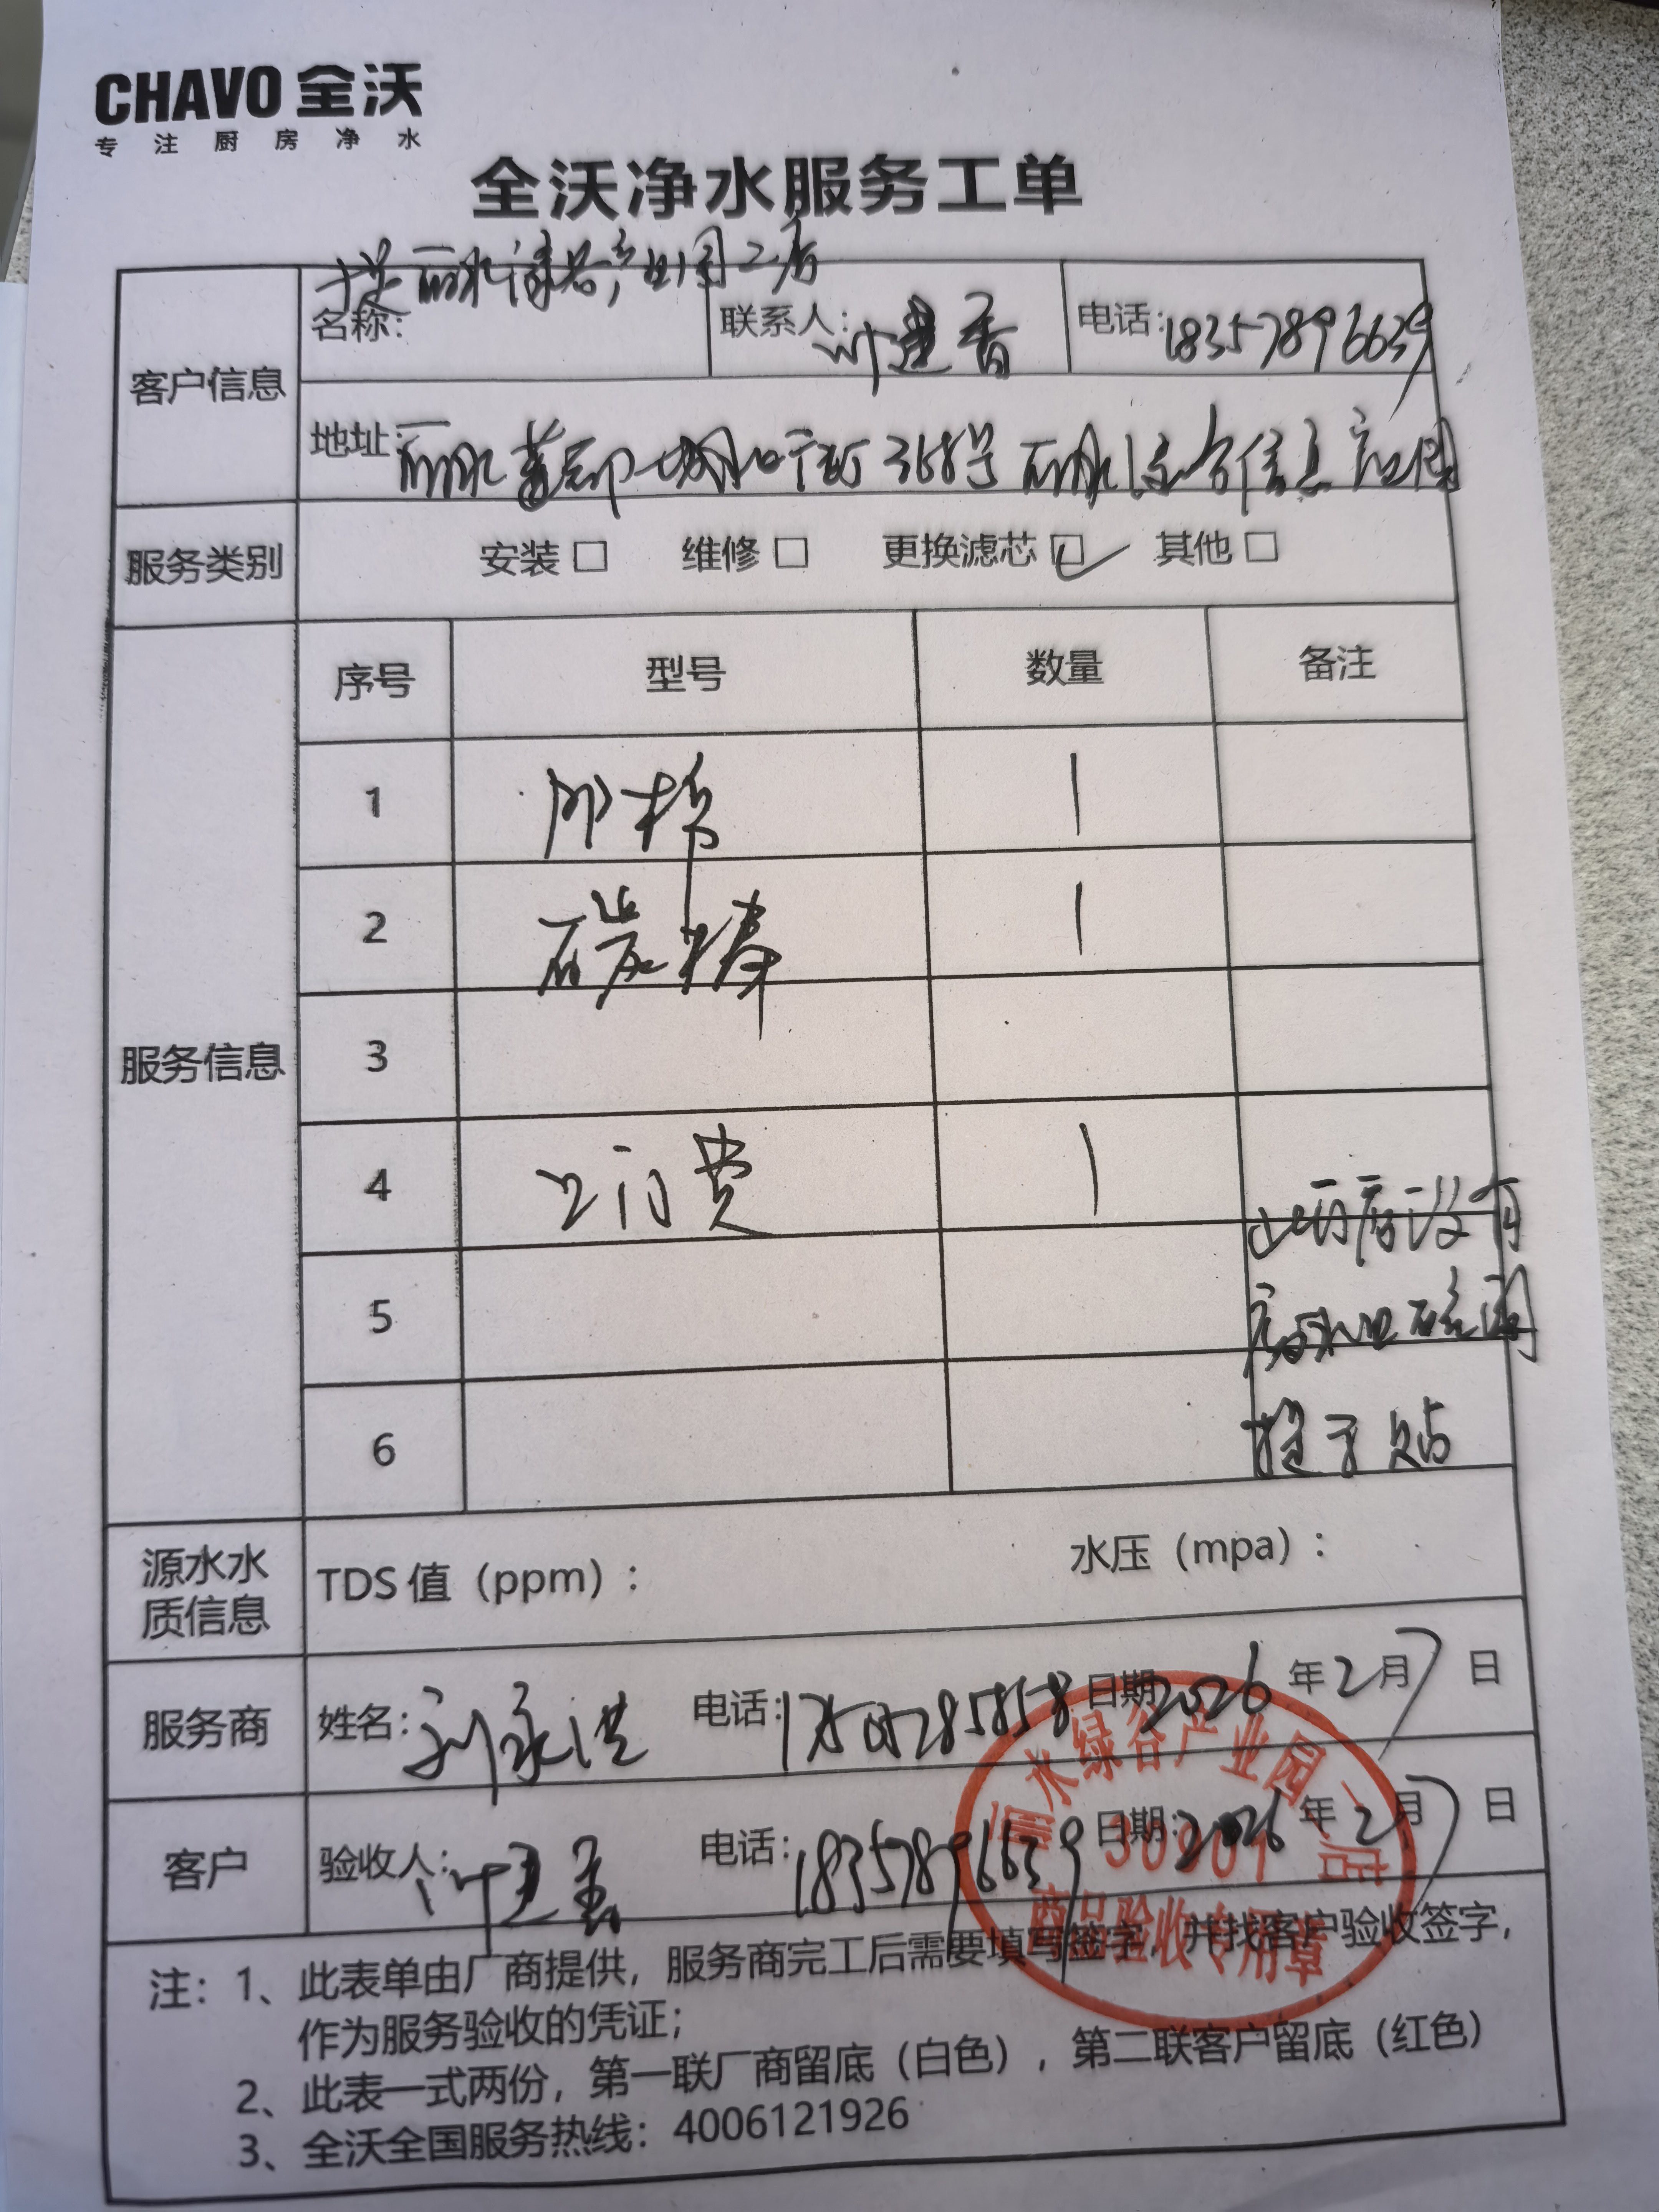 CHAVO 全沃
专注厨房净水
全沃净水服务工单
丽水绿谷产业园二店
客户信息
名称:
联系人: 叶建香
电话: 18357896639
地址: 丽水莲都 368号 丽水绿谷信息产业园
服务类别
安装□ 维修□ 更换滤芯☑ 其他□
服务信息
序号 型号 数量 备注
1 PP棉 1
2 碳棒 1
3
4 上门费 1
此药店没有
废水比 阀
5
提示贴
6
源水水质信息
TDS 值（ppm）: 水压（mpa）:
服务商
姓名: 刘永洪 电话: 17505785858 日期: 2026 年 2 月 7 日
客户
验收人: 叶建香 电话: 18357896639 日期: 2026 年 2 月 7 日
丽水绿谷产业园二店
商品验收专用章
注: 1、此表单由厂商提供，服务商完工后需要填写签字，并找客户验收签字，
作为服务验收的凭证；
2、此表一式两份，第一联厂商留底（白色），第二联客户留底（红色）
3、全沃全国服务热线: 4006121926